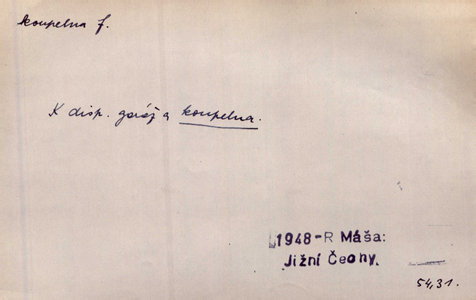 koupelna f.
K disp. garáž a koupelna.
1948-R Máša:
Jižní Čechy.
54,31.